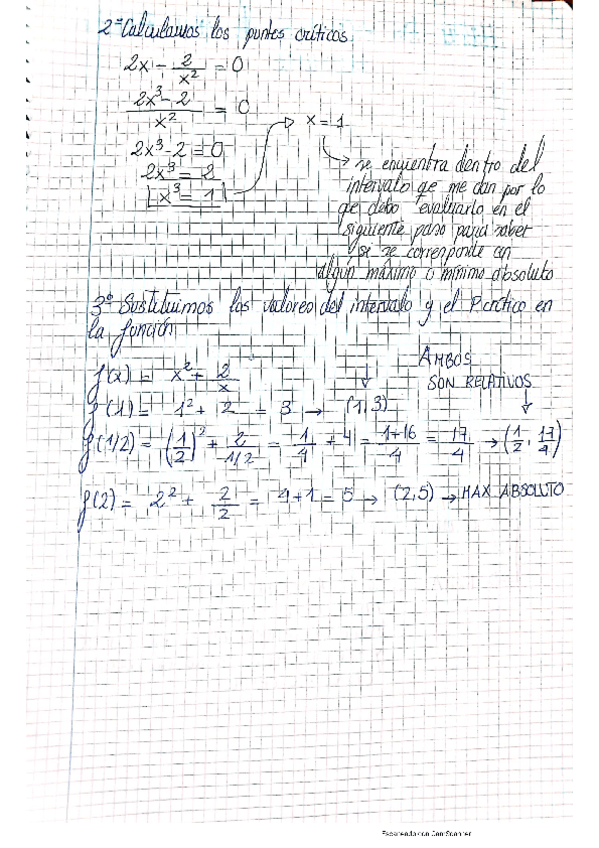 2º Calculamos los puntos críticos
2x - 2/x² = 0
2x³ - 2 / x² = 0
2x³ - 2 = 0
2x³ = 2
x³ = 1 → x = 1
→ se encuentra dentro del
intervalo qe me dan por lo
qe debo evaluarlo en el
siguiente paso para saber
si se corresponde con
algún máximo o mínimo absoluto
3º Sustituimos los valores del intervalo y el P.crítico en
la función
f(x) = x² + 2/x
AMBOS
SON RELATIVOS
f(1) = 1² + 2 = 3 → (1,3)
f(1/2) = (1/2)² + 2/1/2 = 1/4 + 4 = 1+16/4 = 17/4 → (1/2, 17/4)
f(2) = 2² + 2/2 = 4+1 = 5 → (2,5) → MAX ABSOLUTO
Escaneado con CamScanner